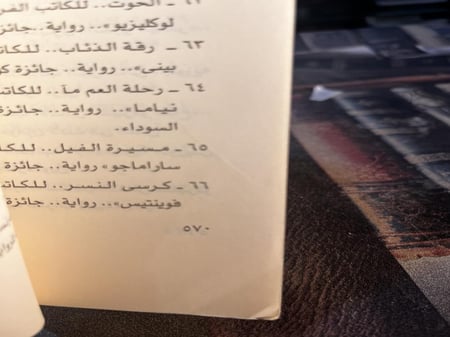 ٦٢ ـ الحوت.. للكاتب
لوكليزيو».. رواية..
٦٣ ـ رقة الذئاب.. للكاتب
بينى».. رواية.. جائزة
٦٤ ـ رحلة العم مآ.. للكاتب
نياما».. رواية.. جائزة
السوداء.
٦٥ ـ مسيرة الفيل..
ساراماجو» رواية.. جائزة
٦٦ ـ كرسى النسر..
فوينتيس».. رواية.. جائزة
٥٧٠